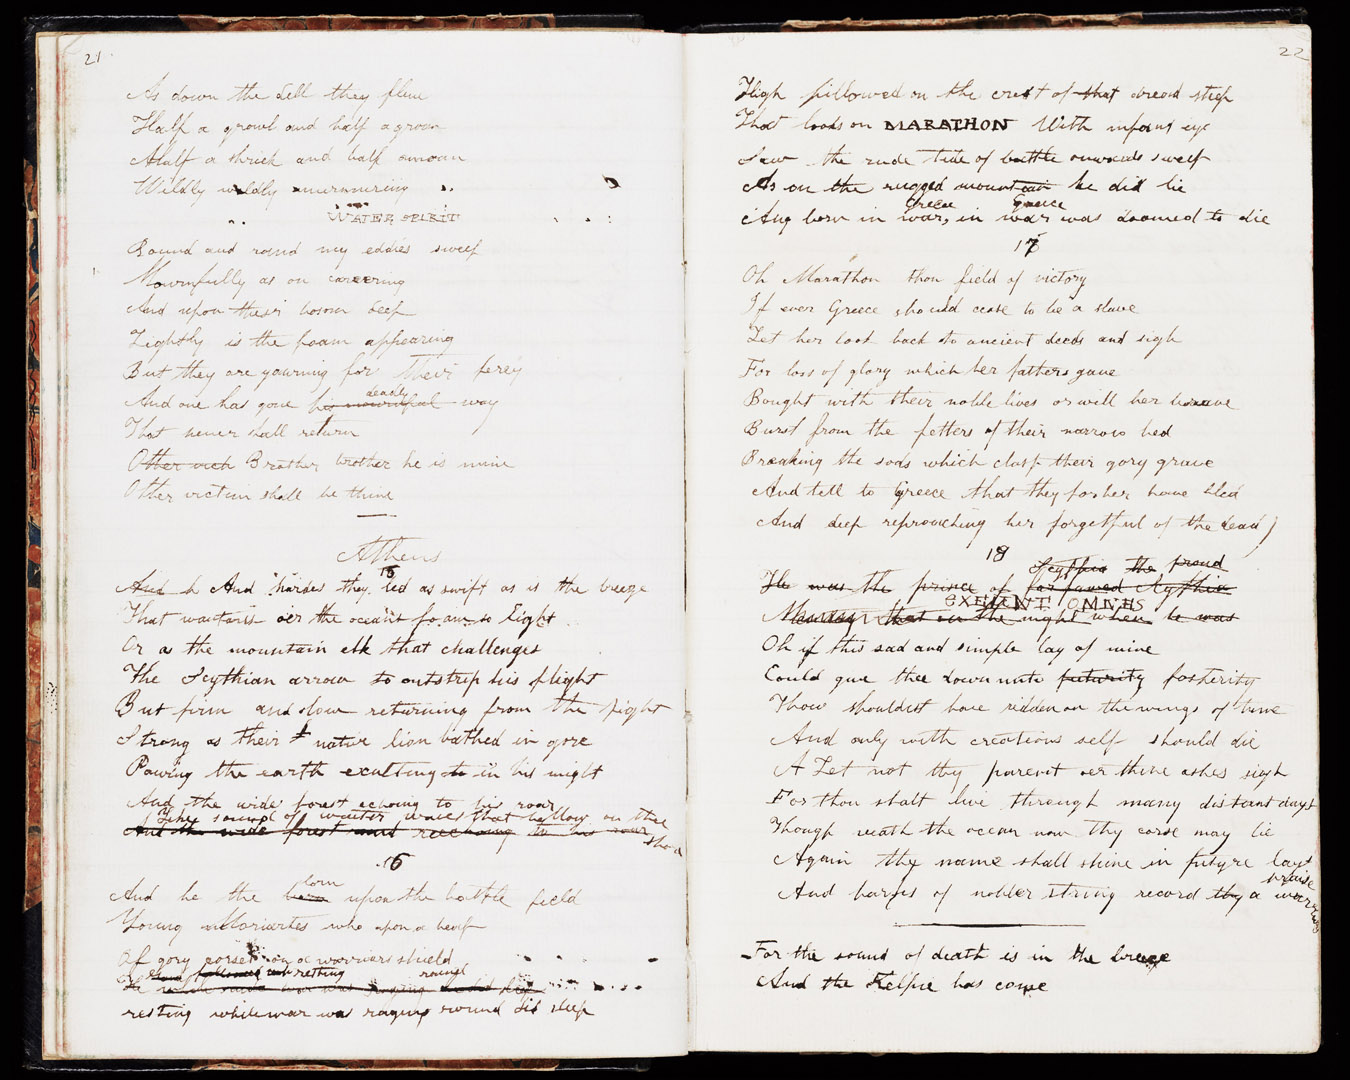 21
As down the dell they flew
Half a growl and half a groan
Half a shriek and half a moan
Wildly wildly murmuring
WATER SPIRIT
Round and round my eddies sweep
Mournfully as on careering
And upon their bosom deep
Lightly is the foam appearing
But they are yawning for their prey
deadly
And one has gone his mournful way
That never shall return
Other vich Brother brother he is mine
Other victim shall be thine
Athens
15
And h And hordes they led as swift as is the breeze
That wantons oer the ocean's foam so light
Or as the mountain elk that challenges
The Scythian arrow to outstrip his flight
But firm and slow returning from the fight
Strong as their native lion bathed in gore
Pawing the earth exulting to in his might
And the wide forest echoing to his roar
Like sound of water waves that bellow on the shore
And the wide forest and reechoing to his roar
16
born
And he the born upon the battle field
Young Moriartes who upon a heap
Of gory corses on a warriors shield
resting
round
resting while war was raging round did sleep
22
High pillowed on the crest of that dread steep
That looks on MARATHON With infant eye
Saw the rude tide of battle onwards sweep
As on the rugged mountain he did lie
Greece Greece
Aug born in war, in war was doomed to die
17
Oh Marathon thou field of victory
If ever Greece should cease to be a slave
Let her look back to ancient deeds and sigh
For loss of glory which her fathers gave
Bought with their noble lives or will her brave
Burst from the fetters of their narrow bed
Breaking the sods which clasp their gory grave
And tell to Greece that they for her have bled
And deep reproaching her forgetful of the dead)
18
Scythia the proud
He was the prince of far famed Scythia
EXEUNT OMNES
that in the night when he was
Oh if this sad and simple lay of mine
Could give thee down unto futurity posterity
Thou shouldst have ridden on the wings of time
And only with creations self should die
A Let not thy parent oer thine ashes sigh
For thou shalt live through many distant days
Though neath the ocean now thy corse may lie
Again thy name shall shine in future lays
And harps of nobler string record thy a warriors praise
For the sound of death is in the breeze
And the Kelpie has come